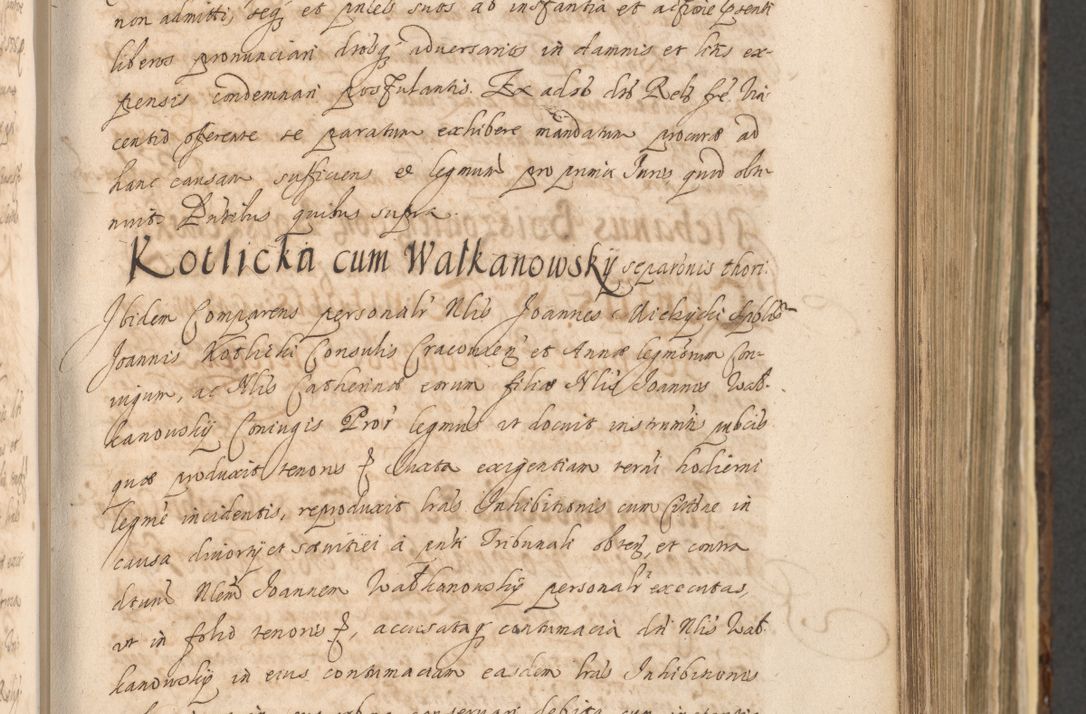 non admitti, seq et pntes suos ab instantia et actione
liberos pronunciari dictosq adversarios in damnis et litis ex-
pensis condemnari postulantis. Ex adso dno Relg fr. Vin
centio offerente se paratum exhibere mandatum procurae ad
hanc causam sufficiens et legmum pro primia Juris quod obti-
nuit Pntibus quibus supra.
Kotlicka cum Watkanowsky separonis thori.
Ibidem Comparens personalr Nlis Joannes Spblium
Joannis Kotlicki Consulis Cracovien et Annae legmorum Con-
iugum, ac Nlis Catherinae eorum filiae Nlis Joannis Wat-
kanovsky Coniugis Pror legmus ut docuit instrumtis pubcis
quae produxit tenoris ꝭ Iuxta exigentiam termi hodierni
legme incidentis, reproduxit lras Inhibitionis cum Cittone in
causa divortij et saevitiei à pnti Tribunali obten, et contra
dtum Nlem Joannem Watkanowsky personalr executas,
ut in folio tenoris ꝭ, accusataq contumacia dni Nlis Wat-
kanovsky in eius contumaciam easdem lras Inhibitionis